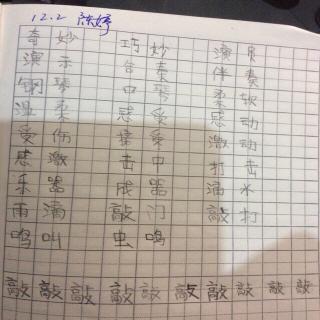 12.2
奇妙 巧妙 演员
演示 合奏 伴奏
钢琴 中琴 柔软
温柔 感受 感动
受伤 接受 激动
感激 击中 打击
乐器 成器 滴水
雨滴 敲门 敲打
鸣叫 虫鸣
敲敲敲敲敲敲敲敲敲敲